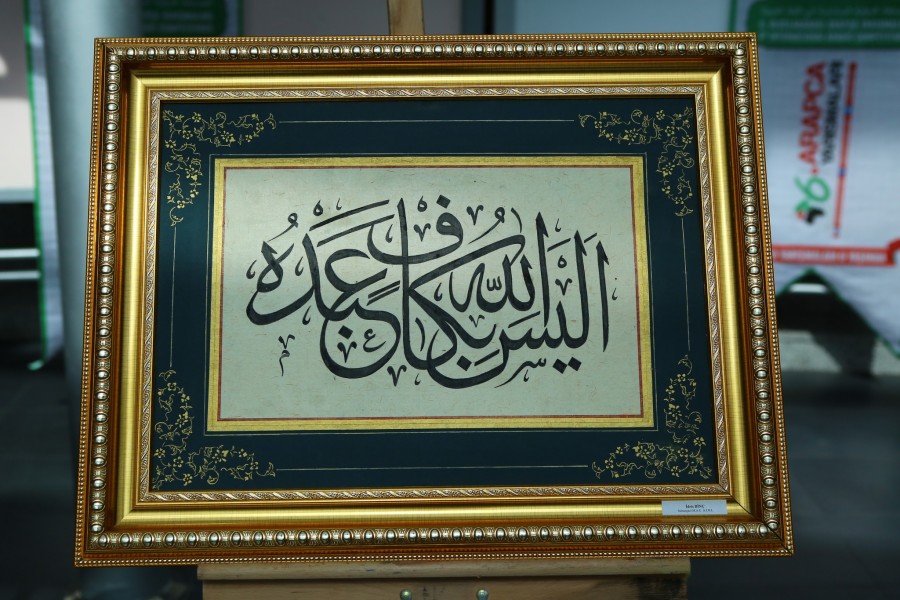 اَلَيْسَ اللّٰهُ بِكَافٍ عَبْدَهُ
ARAPCA
YARIŞMALARI